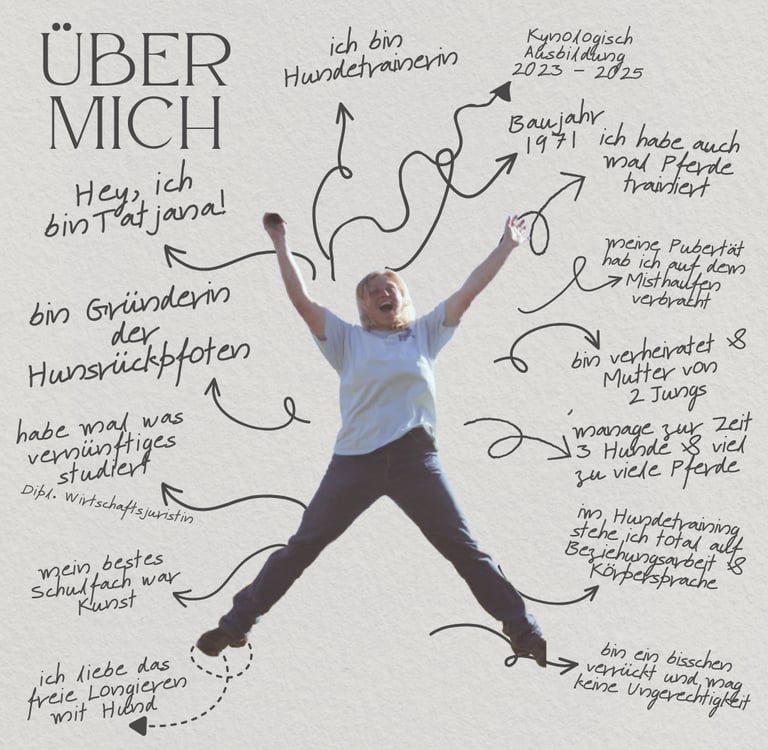 ÜBER
MICH
ich bin
Hundetrainerin
Kynologisch
Ausbildung
2023 – 2025
Baujahr
1971
ich habe auch
mal Pferde
trainiert
Hey, ich
bin Tatjana!
meine Pubertät
hab ich auf dem
Misthaufen
verbracht
bin Gründerin
der
Hunsrückpfoten
bin verheiratet &
Mutter von
2 Jungs
habe mal was
vernünftiges
studiert
Dipl. Wirtschaftsjuristin
manage zur Zeit
3 Hunde & viel
zu viele Pferde
mein bestes
Schulfach war
Kunst
im Hundetraining
stehe ich total auf
Beziehungsarbeit &
Körpersprache
ich liebe das
freie Longieren
mit Hund
bin ein bisschen
verrückt und mag
keine Ungerechtigkeit